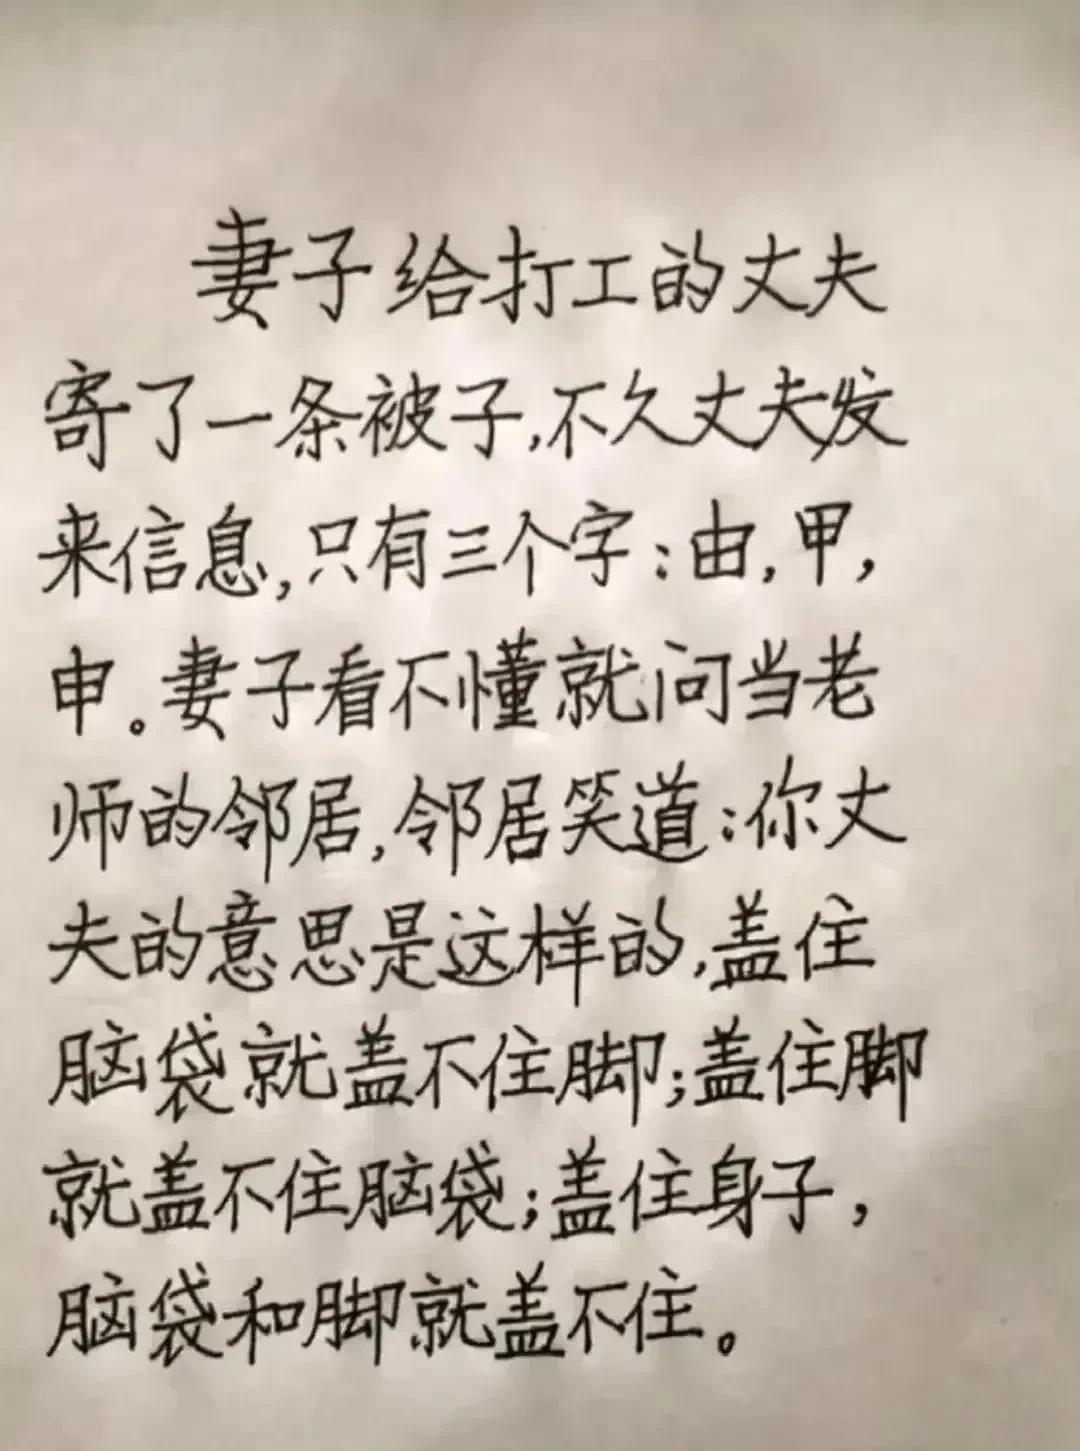 妻子给打工的丈夫
寄了一条被子,不久丈夫发
来信息,只有三个字:由,甲,
申。妻子看不懂就问当老
师的邻居,邻居笑道:你丈
夫的意思是这样的,盖住
脑袋就盖不住脚;盖住脚
就盖不住脑袋;盖住身子,
脑袋和脚就盖不住。